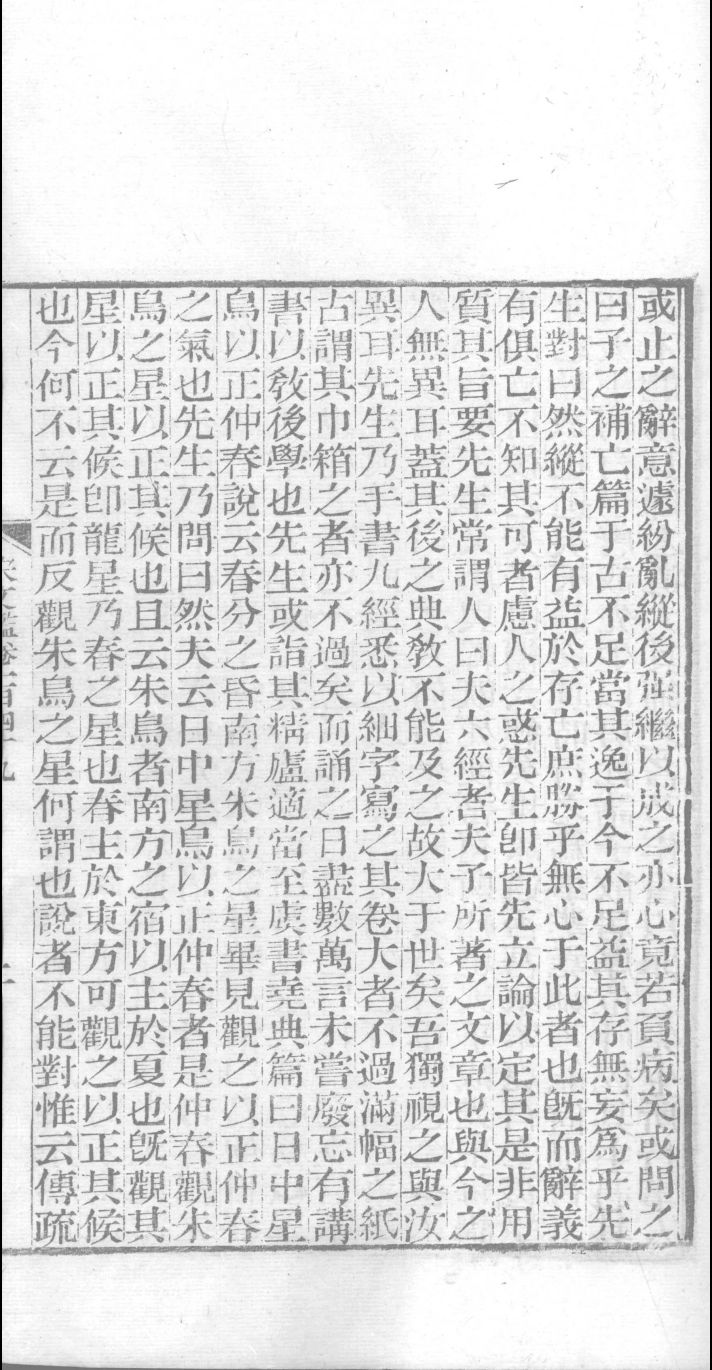 或止之辭意遽紛亂縱後強繼以成之亦心竟若負病矣或問之
曰子之補亡篇于古不足當其逸于今不足益其存無妄爲乎先
生對曰然縱不能有益於存亡庶勝乎無心于此者也旣而辭義
有俱亡不知其可者慮人之惑先生卽皆先立論以定其是非用
質其旨要先生常謂人曰夫六經者夫子所著之文章也與今之
人無異耳蓋其後之典敎不能及之故大于世矣吾獨視之與汝
異耳先生乃手書九經悉以細字寫之其卷大者不過滿幅之紙
古謂其巾箱之者亦不過矣而誦之日盡數萬言未嘗廢忘有講
書以敎後學也先生或詣其精廬適當至虞書堯典篇曰日中星
鳥以正仲春說云春分之昏南方朱鳥之星畢見觀之以正仲春
之氣也先生乃問曰然夫云日中星鳥以正仲春者是仲春觀朱
鳥之星以正其候也且云朱鳥者南方之宿以主於夏也旣觀其
星以正其候卽龍星乃春之星也春主於東方可觀之以正其候
也今何不云是而反觀朱鳥之星何謂也說者不能對惟云傳疏
宋文鑑卷一百四十九